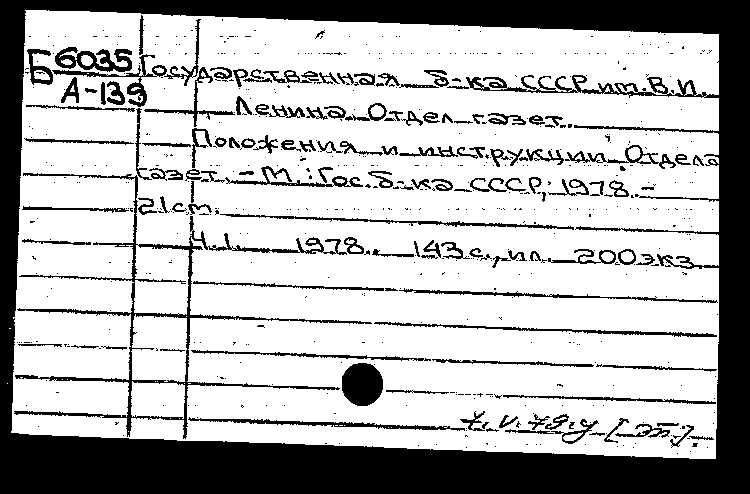 Б 6035 Государственная б-ка СССР им. В.И.
А-139 Ленина. Отдел газет.
Положения и инструкции Отдела
газет. - М.: Гос. б-ка СССР, 1978. -
21 см.
Ч.1. 1978. 143 с., ил. 200 экз.
7.V.79.у [ЭП].